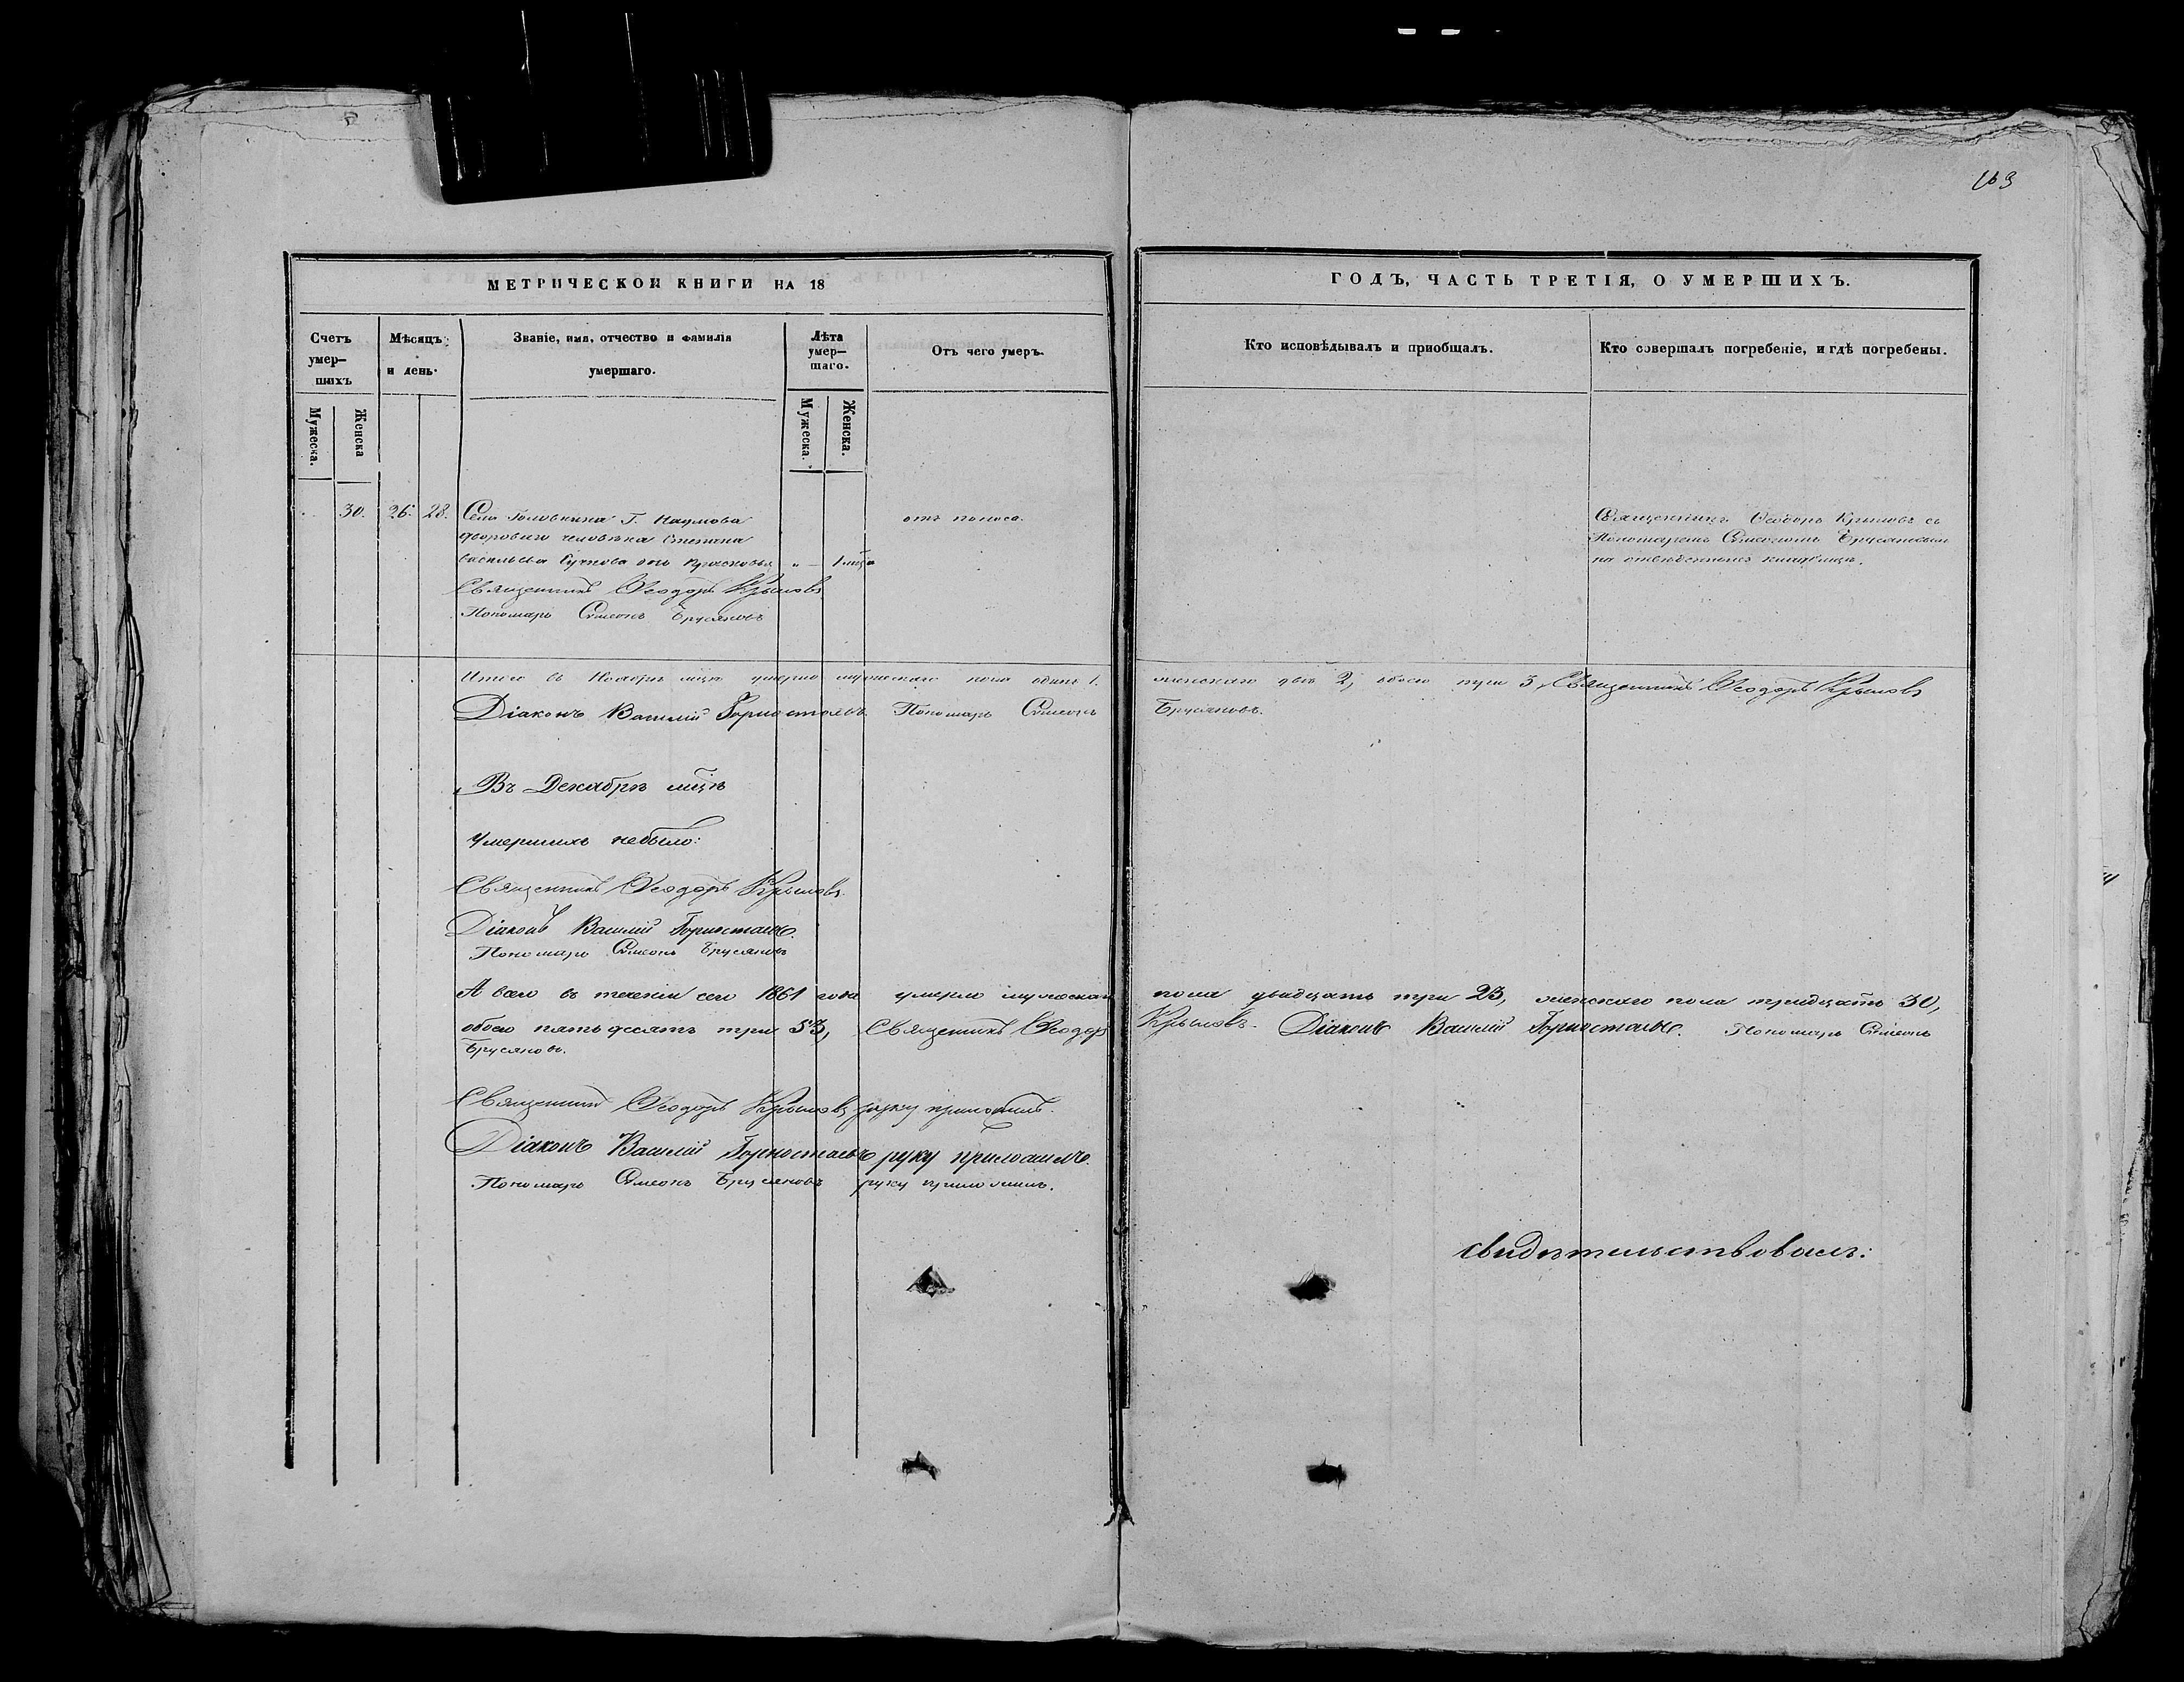 163
МЕТРИЧЕСКОЙ КНИГИ НА 18
ГОДЪ, ЧАСТЬ ТРЕТІЯ, О УМЕРШИХЪ.
Счетъ умер-шихъ
Мѣсяцъ и день.
Званіе, имя, отчество и фамилія умершаго.
Лѣта умер-шаго.
Отъ чего умеръ.
Кто исповѣдывалъ и пріобщалъ.
Кто совершалъ погребеніе, и гдѣ погребены.
Мужеска.
Женска
Мужеска.
Женска.
30. 26. 28. Села Головкина Г. Наумова
двороваго человѣка Степана
Васильева дочь Прасковья " 1 мца
отъ поноса.
Священникъ Ѳеодоръ Крыловъ съ
Пономаремъ Симеономъ Брусяновымъ
на отведенномъ кладбищѣ.
Священникъ Ѳеодоръ Крыловъ
Пономарь Симеонъ Брусяновъ
Итого въ Ноябрѣ мцѣ умерло мужескаго пола одинъ 1. женскаго двѣ 2, обоего три 3, Священникъ Ѳеодоръ Крыловъ
Діаконъ Василій Горностаевъ. Пономарь Симеонъ Брусяновъ.
Въ Декабрѣ мцѣ
Умершихъ небыло:
Священникъ Ѳеодоръ Крыловъ.
Діаконъ Василій Горностаевъ.
Пономарь Симеонъ Брусяновъ
А всего въ теченіи сего 1861 года умерло мужескаго пола двадцать три 23, женскаго пола тридцать 30,
обоего пятьдесятъ три 53, Священникъ Ѳеодоръ Крыловъ. Діаконъ Василій Горностаевъ. Пономарь Симеонъ
Брусяновъ.
Священникъ Ѳеодоръ Крыловъ руку приложилъ.
Діаконъ Василій Горностаевъ руку приложилъ.
Пономарь Симеонъ Брусяновъ руку приложилъ.
свидѣтельствовалъ: